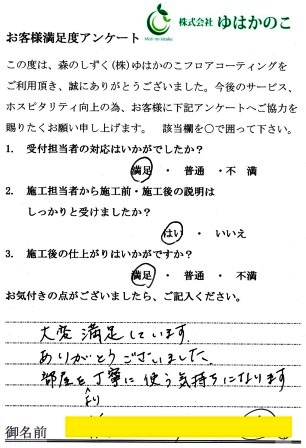 株式会社 ゆはかのこ
お客様満足度アンケート
この度は、森のしずく(株)ゆはかのこフロアコーティングを
ご利用頂き、誠にありがとうございました。今後のサービス、
ホスピタリティ向上の為、お客様に下記アンケートへご協力を
賜りたくお願い申し上げます。 該当欄を○で囲って下さい。
1. 受付担当者の対応はいかがでしたか?
満足 ・ 普通 ・ 不 満
2. 施工担当者から施工前・施工後の説明は
しっかりと受けましたか?
はい ・ いいえ
3. 施工後の仕上がりはいかがですか?
満足 ・ 普通 ・ 不満
お気付きの点がございましたら、ご記入ください。
大変満足しています。
ありがとうございました
部屋を丁寧に使う気持ちになります
より
御名前